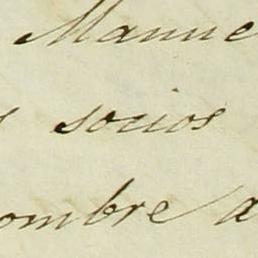 Manue
s socios
ombre a